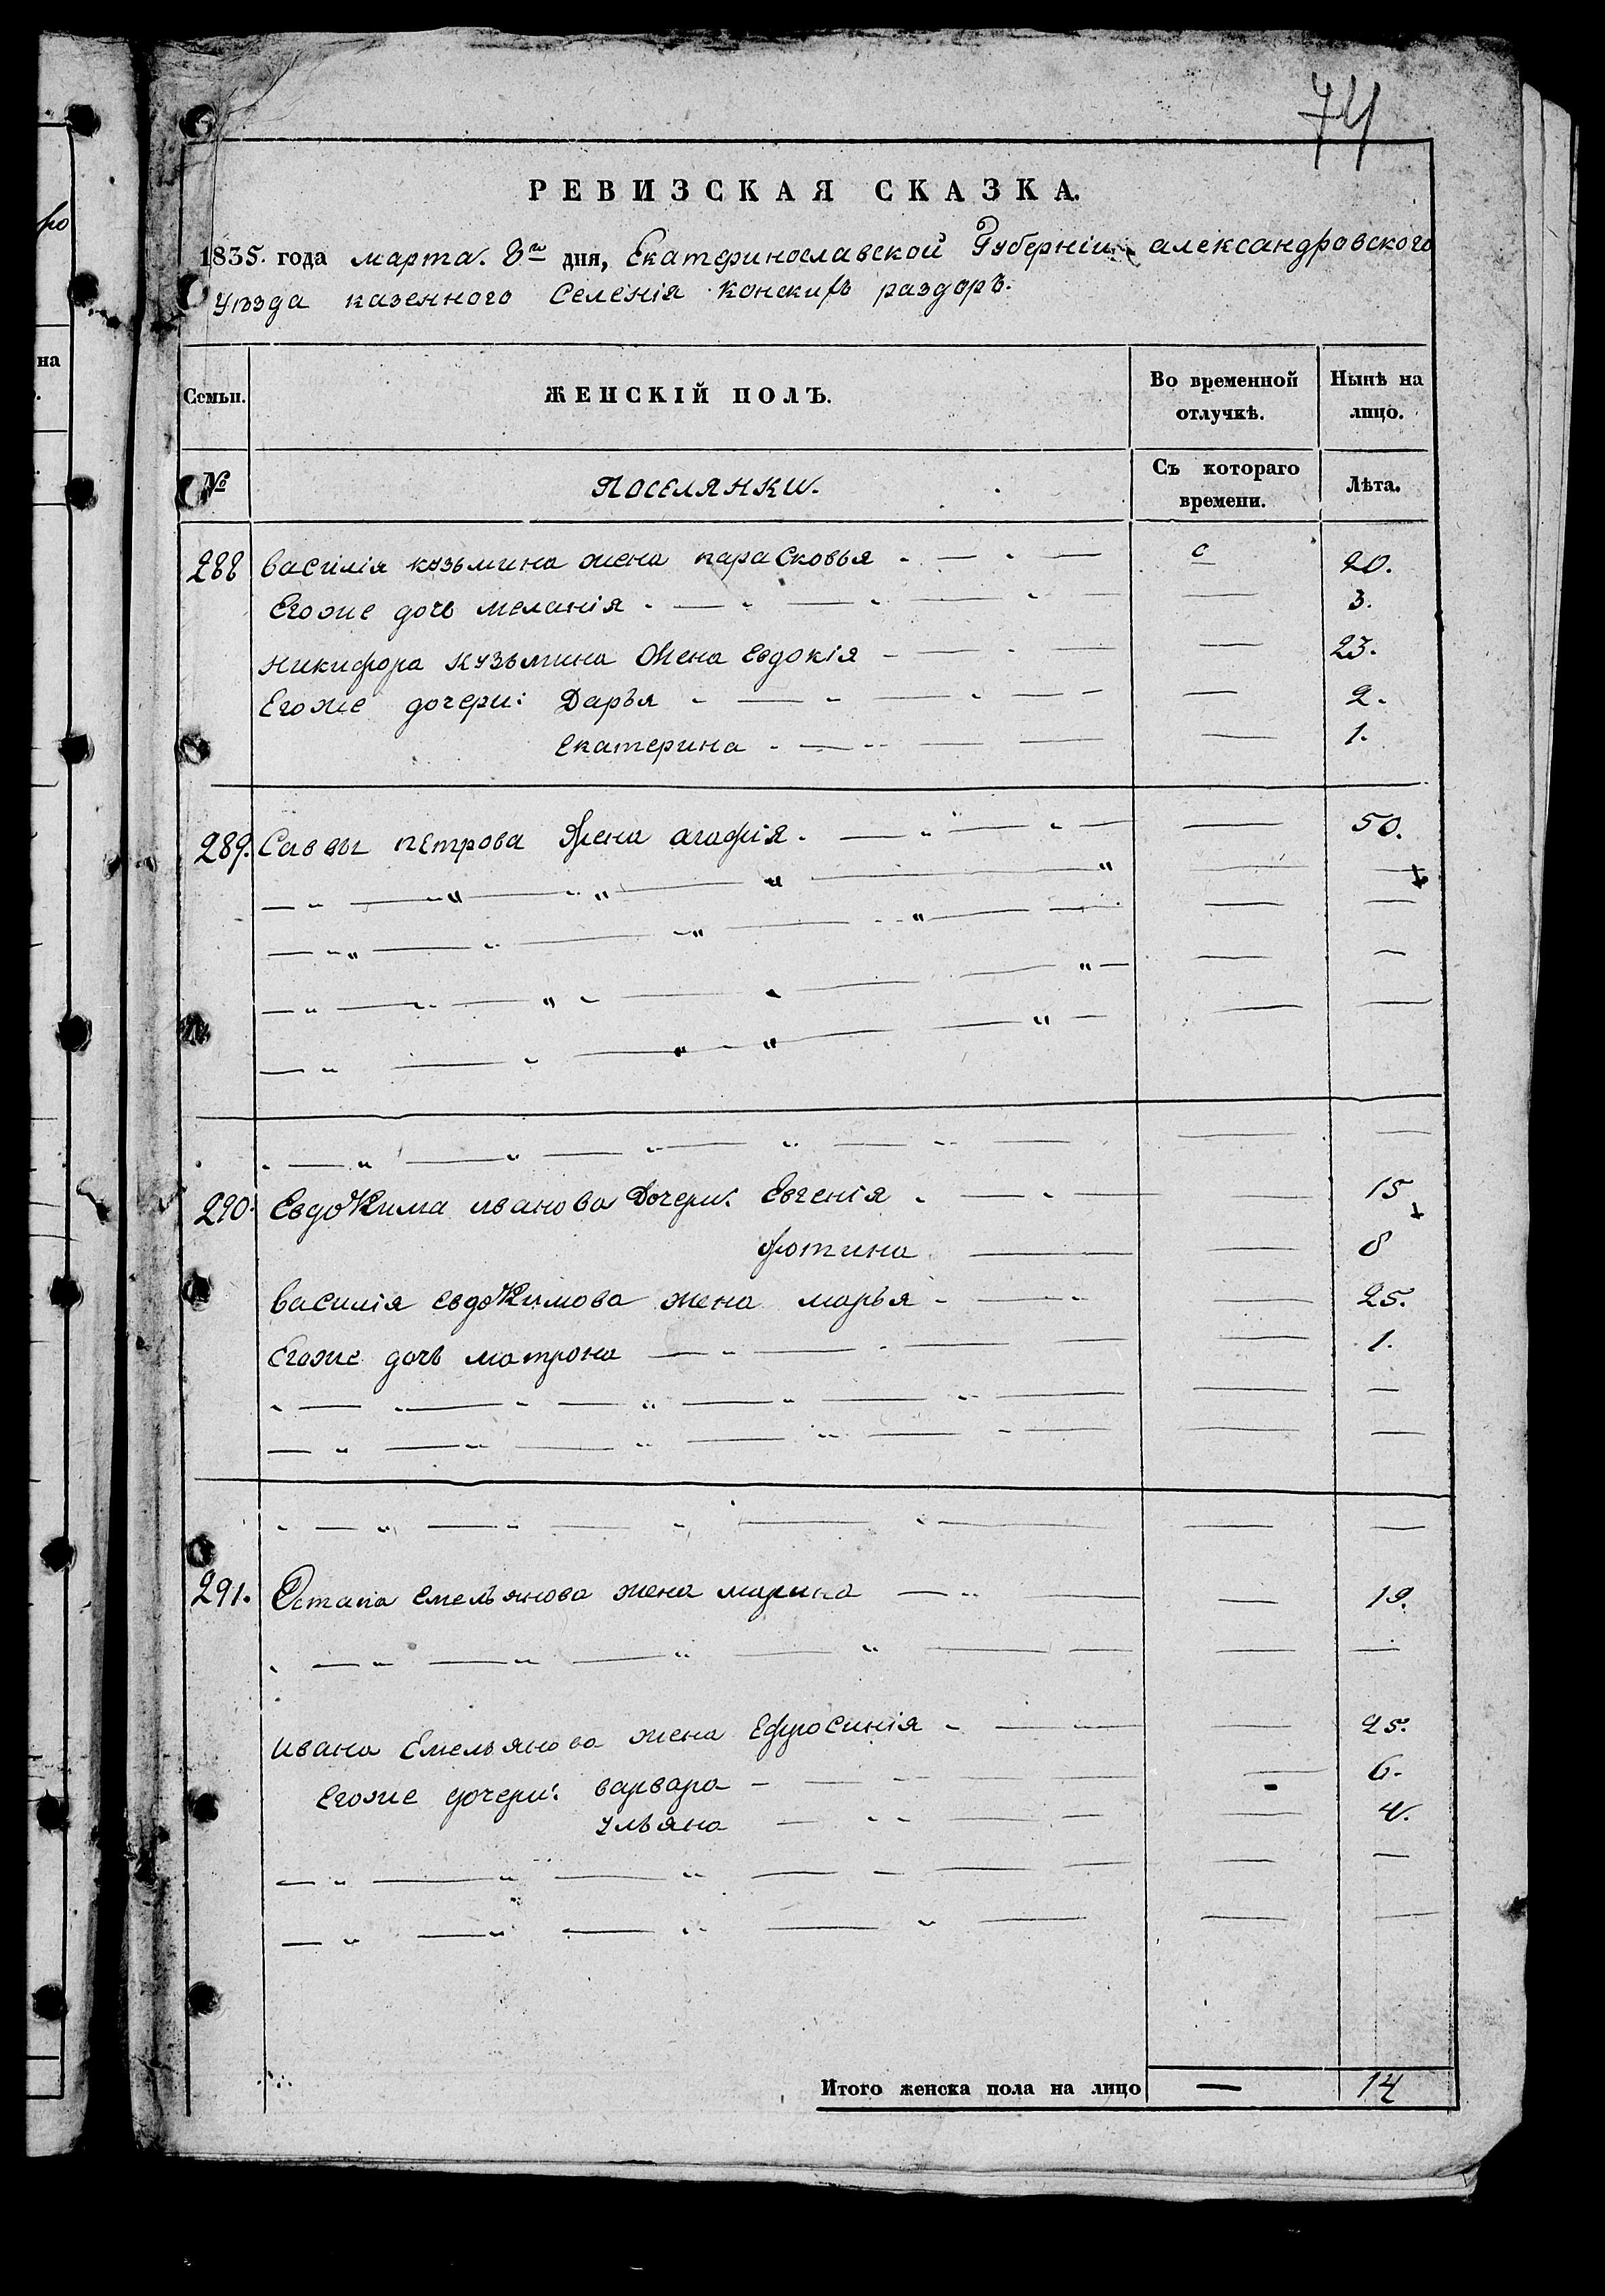 74
РЕВИЗСКАЯ СКАЗКА.
1835. года марта. 8го дня, Екатеринославской Губерніи александровского
Уѣзда казенного Селенія Конскихъ раздоръ.
на
Семьи. ЖЕНСКІЙ ПОЛЪ. Во временной отлучкѣ. Нынѣ на лицо.
№ ПОСЕЛЯНКИ. Съ котораго времени. Лѣта.
288 Василія кузьмина жена парасковья 20.
Егоже дочь меланія 3.
Никифора кузьмина Жена Евдокія 23.
Егоже дочери: Дарья 2.
Екатерина 1.
289. Саввы петрова Жена агафія. 50.
290. Евдокима иванова Дочери: Евгенія 15
фотина 8
Василія евдокимова жена марья 25.
Егоже дочь матрона 1.
291. Остапа емельянова жена марина 19.
Ивана Емельянова жена Ефросинія 25.
Егоже дочери: варвара 6.
ульяна 4.
Итого женска пола на лицо — 14